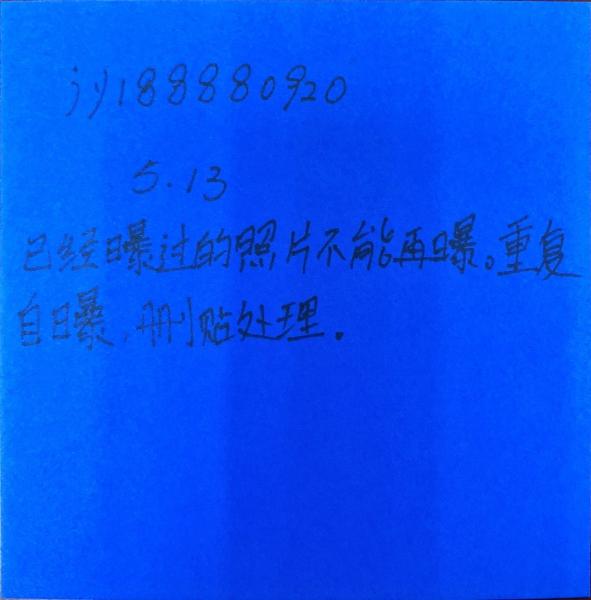 jy188880920
5.13
已经曝过的照片不能再曝。重复
自曝,删贴处理。